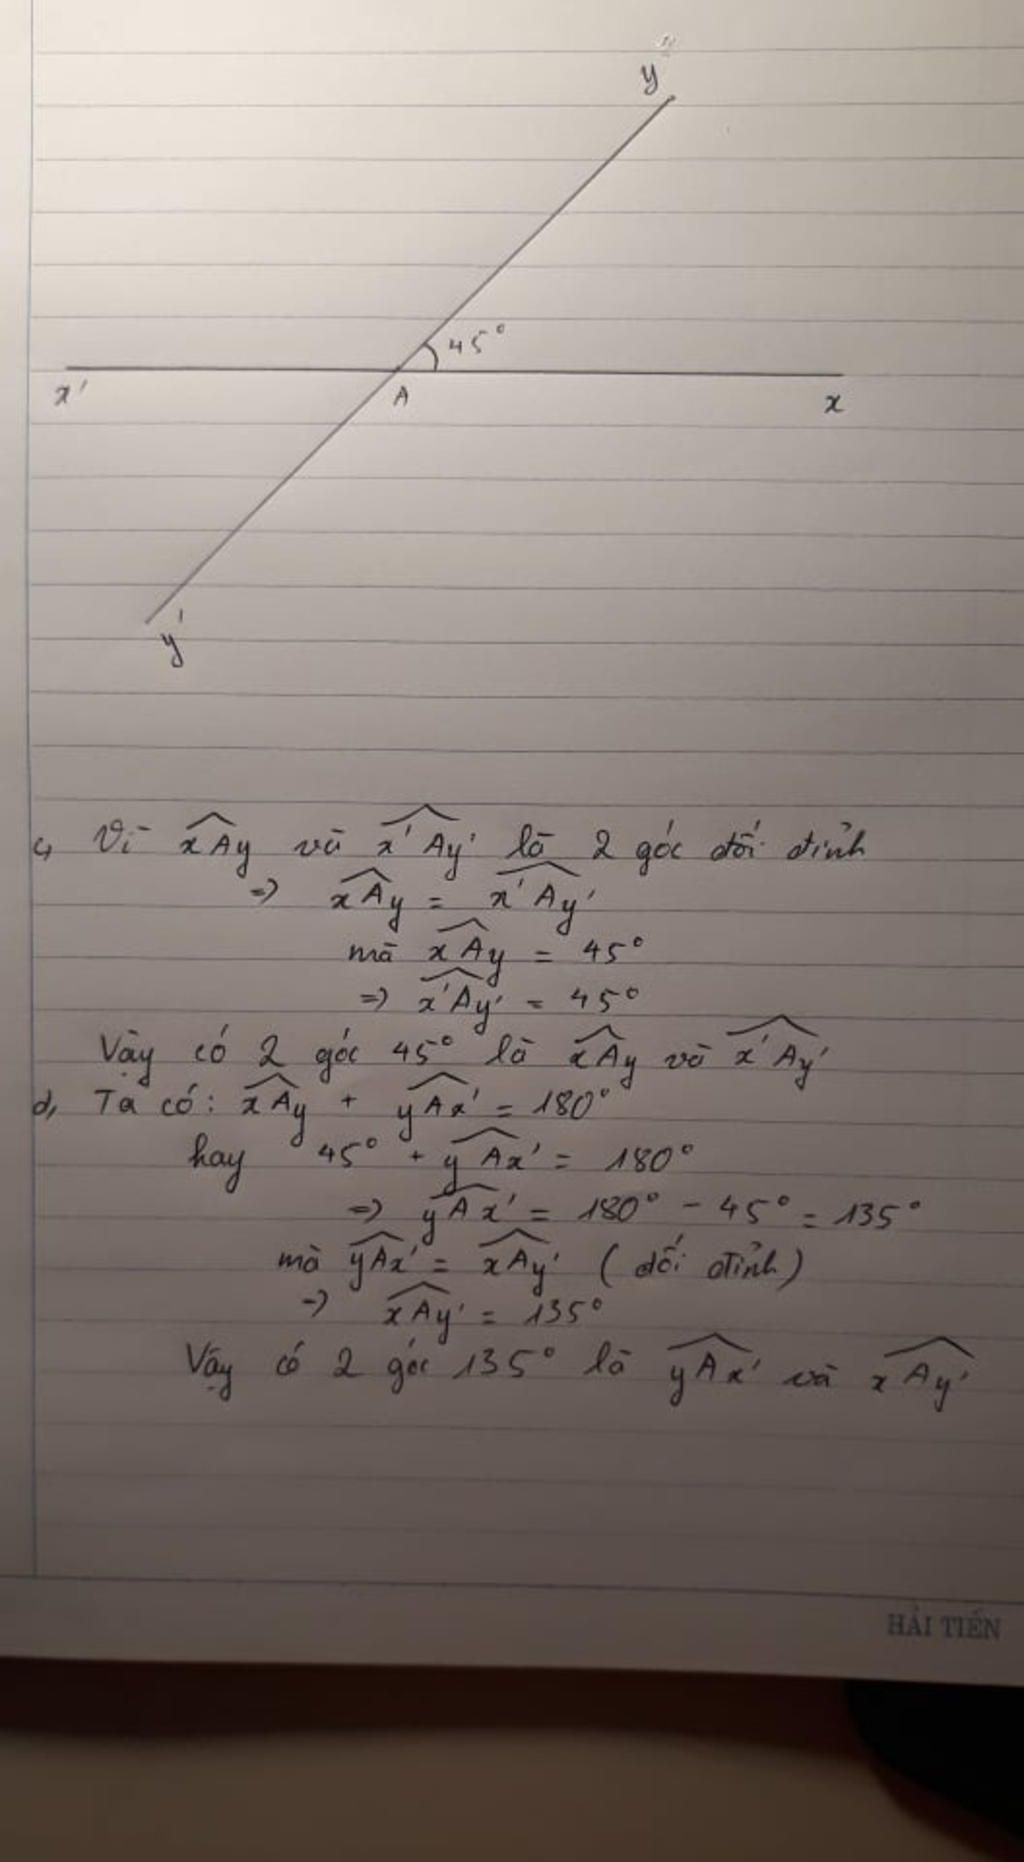 y
45°
x'
A
x
y'
c, Vì $\widehat{xAy}$ và $\widehat{x'Ay'}$ là 2 góc đối đỉnh
=> $\widehat{xAy}$ = $\widehat{x'Ay'}$
mà $\widehat{xAy}$ = 45°
=> $\widehat{x'Ay'}$ = 45°
Vậy có 2 góc 45° là $\widehat{xAy}$ và $\widehat{x'Ay'}$
d, Ta có: $\widehat{xAy}$ + $\widehat{yAx'}$ = 180°
hay 45° + $\widehat{yAx'}$ = 180°
=> $\widehat{yAx'}$ = 180° - 45° = 135°
mà $\widehat{yAx'}$ = $\widehat{xAy'}$ (đối đỉnh)
=> $\widehat{xAy'}$ = 135°
Vậy có 2 góc 135° là $\widehat{yAx'}$ và $\widehat{xAy'}$
HẢI TIẾN